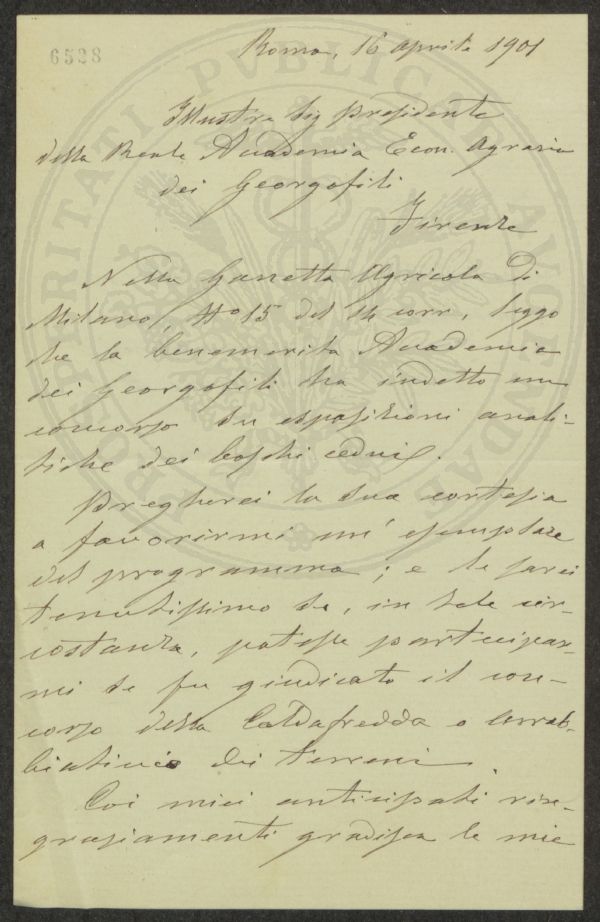 6538
Roma, 16 aprile 1901
Illustre Sig Presidente
della Reale Accademia Econ. Agraria
dei Georgofili
Firenze
Nella Gazzetta Agricola di
Milano, No 15 del 14 corr, leggo
che la benemerita Accademia
dei Georgofili ha indetto un
concorso su esposizioni anali-
tiche dei boschi cedui.
Pregherei la sua cortesia
a favorirmi un' esemplare
del programma; e le sarei
tenutissimo se, in tale cir-
costanza, potesse partecipar-
mi se fu giudicato il con-
corso della Caldafredda o arrab-
biaticcio dei terreni.
Coi miei anticipati rin-
graziamenti gradisca le mie
PROSPERITATI PVBLICAE AVGENDAE